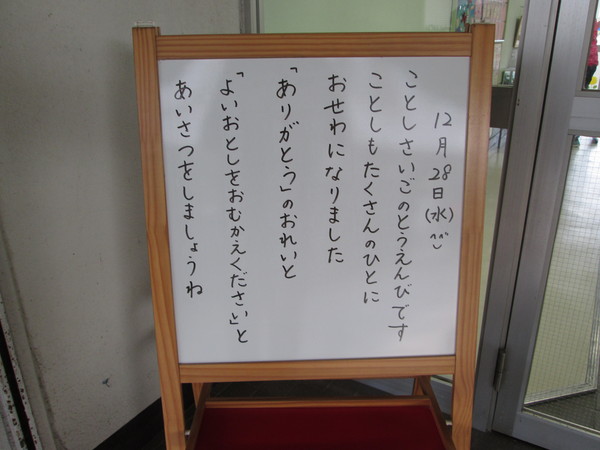 12月28日(水)
ことしさいごのとうえんびです
ことしもたくさんのひとに
おせわになりました
「ありがとう」のおれいと
「よいおとしをおむかえください」と
あいさつをしましょうね